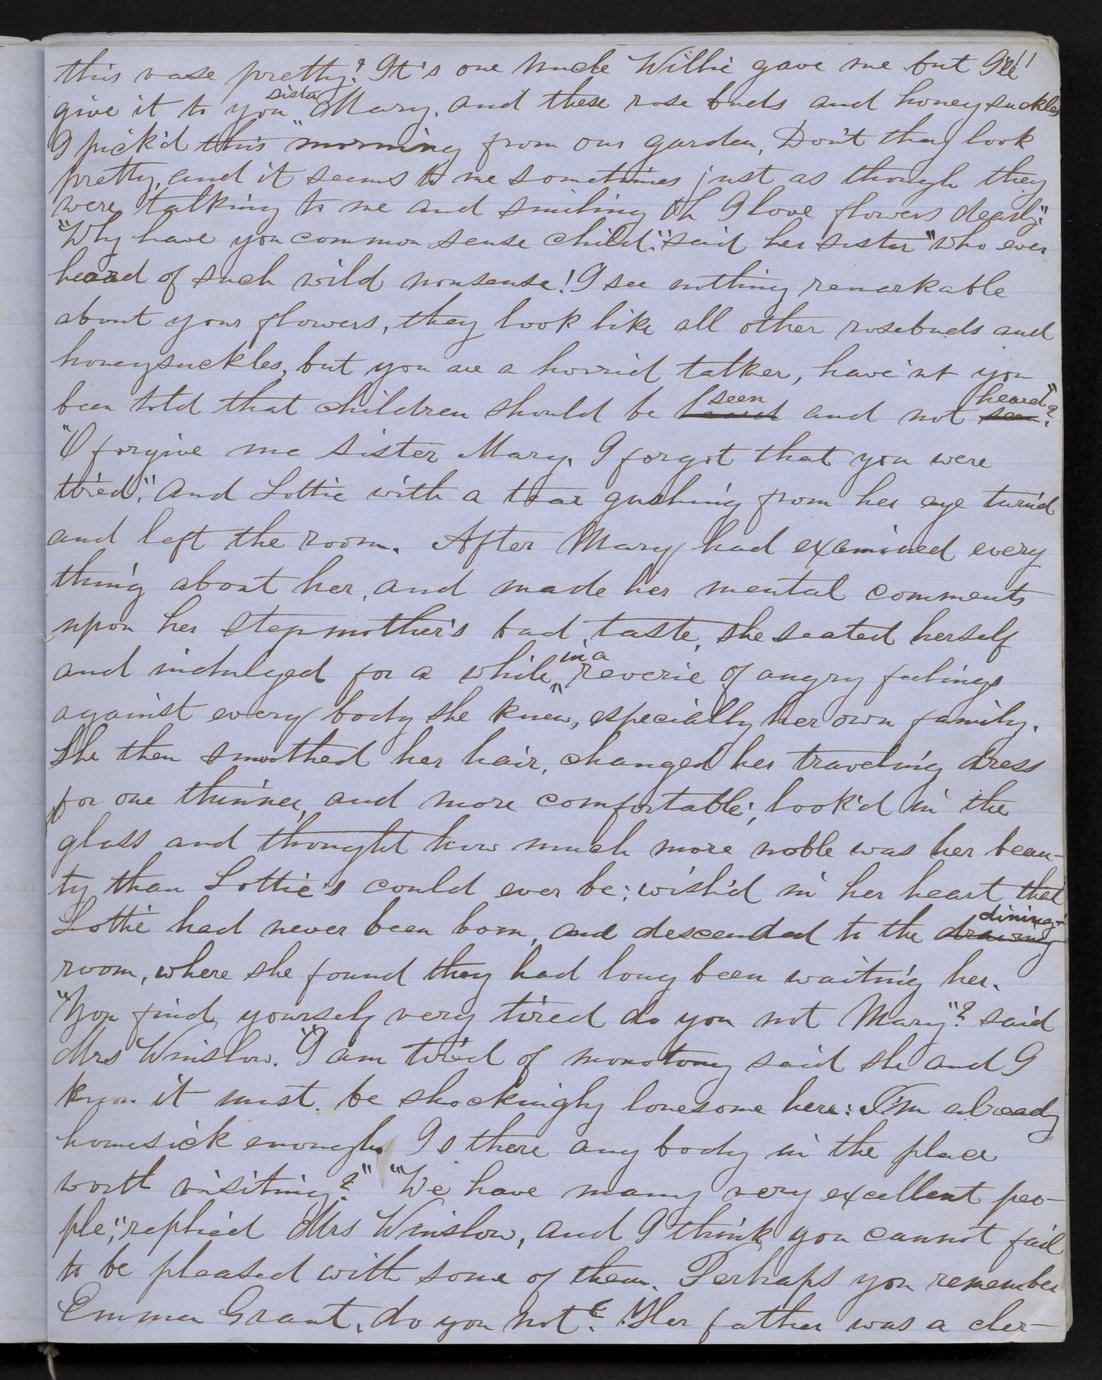 this vase pretty? It's one Uncle Willie gave me but I'll
give it to you sister Mary, and these rose buds and honeysuckles
I pick'd this morning from our garden, Don't they look
pretty, and it seems to me sometimes just as though they
were talking to me and smiling Oh I love flowers dearly."
"Why have you common sense child." said her sister "who ever
heard of such wild nonsense! I see nothing remarkable
about your flowers, they look like all other rosebuds and
honeysuckles, but you are a horrid talker, have'nt you
been told that children should be heard seen and not seen heard"?
"O forgive me sister Mary. I forgot that you were
tired." And Lottie with a tear gushing from her eye turn'd
and left the room. After Mary had examined every
thing about her, and made her mental comments
upon her stepmother's bad taste, she seated herself
and indulged for a while in a reverie of angry feelings
against every body she knew, especially her own family.
She then smoothed her hair, changed her traveling dress
for one thinner, and more comfortable; look'd in the
glass and thought how much more noble was her beau-
ty than Lottie's could ever be; wish'd in her heart that
Lottie had never been born, and descended to the drawing dining-
room, where she found they had long been waiting her.
"You find yourself very tired do you not Mary"? said
Mrs Winslow. "I am tired of monotony said she and I
know it must be shockingly lonesome here: I'm already
homesick enough. Is there any body in the place
worth visiting?" "We have many very excellent peo-
ple," replied Mrs Winslow, and I think you cannot fail
to be pleased with some of them. Perhaps you remember
Emma Grant, do you not? Her father was a cler-